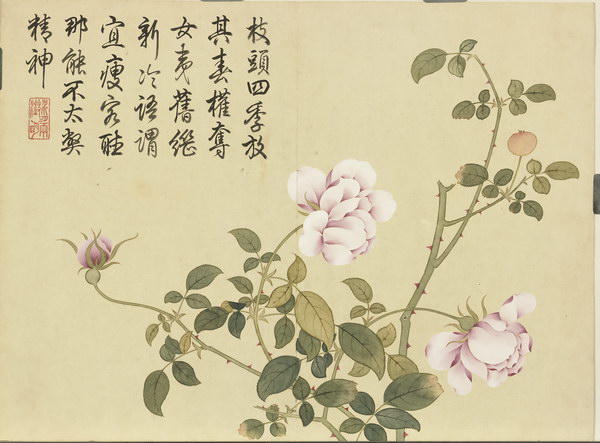 枝頭四季放
其春權奪
女夷舊繼
新冷語謂
宜瘦客
那能不太
精神